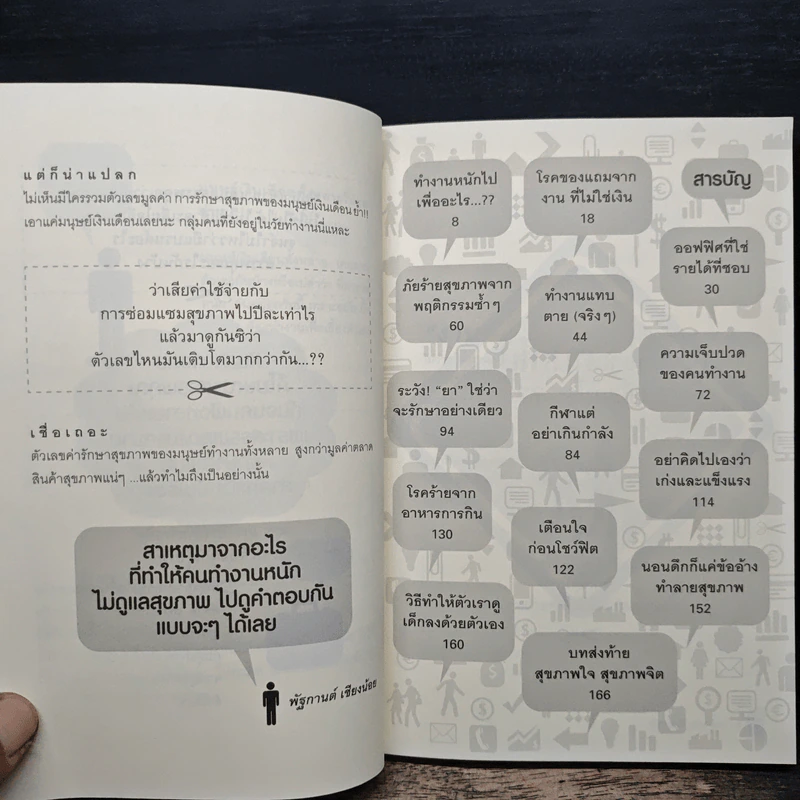 แต่ก็น่าแปลก
ไม่เห็นมีใครรวมตัวเลขมูลค่า การรักษาสุขภาพของมนุษย์เงินเดือน ย้ำ!!
เอาแค่มนุษย์เงินเดือนเลยนะ กลุ่มคนที่ยังอยู่ในวัยทำงานนี่แหละ
ว่าเสียค่าใช้จ่ายกับ
การซ่อมแซมสุขภาพไปปีละเท่าไร
แล้วมาดูกันซิว่า
ตัวเลขไหนมันเติบโตมากกว่ากัน...??
เชื่อเถอะ
ตัวเลขค่ารักษาสุขภาพของมนุษย์ทำงานทั้งหลาย สูงกว่ามูลค่าตลาด
สินค้าสุขภาพแน่ๆ ...แล้วทำไมถึงเป็นอย่างนั้น
สาเหตุมาจากอะไร
ที่ทำให้คนทำงานหนัก
ไม่ดูแลสุขภาพ ไปดูคำตอบกัน
แบบจะๆ ได้เลย
พัฐกานต์ เชียงน้อย
สารบัญ
ทำงานหนักไป
เพื่ออะไร...??
8
โรคของแถมจาก
งาน ที่ไม่ใช่เงิน
18
ออฟฟิศที่ใช่
รายได้ที่ชอบ
30
ทำงานแทบ
ตาย (จริงๆ)
44
ภัยร้ายสุขภาพจาก
พฤติกรรมซ้ำๆ
60
ความเจ็บปวด
ของคนทำงาน
72
กีฬาแต่
อย่าเกินกำลัง
84
ระวัง! “ยา” ใช่ว่า
จะรักษาอย่างเดียว
94
อย่าคิดไปเองว่า
เก่งและแข็งแรง
114
เตือนใจ
ก่อนโชว์ฟิต
122
โรคร้ายจาก
อาหารการกิน
130
นอนดึกก็แค่ข้ออ้าง
ทำลายสุขภาพ
152
วิธีทำให้ตัวเราดู
เด็กลงด้วยตัวเอง
160
บทส่งท้าย
สุขภาพใจ สุขภาพจิต
166